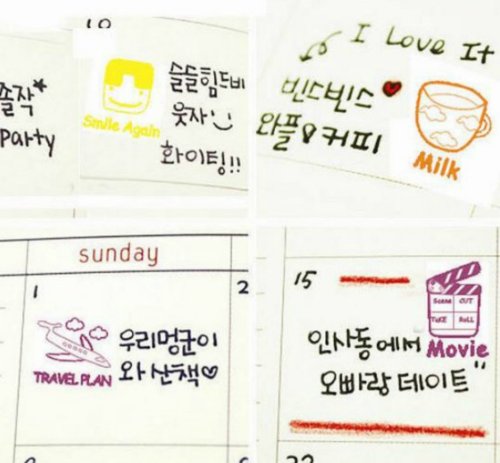 10
졸작*
Party
Smile Again
슬슬힘드네
웃자
화이팅!!
I Love It
빈드빈스♥
와플&커피
Milk
sunday
1
2
우리멍균이
와 산책♡
TRAVEL PLAN
15
Scene CUT
TAKE ROLL
인사동에서
Movie
오빠랑 데이트